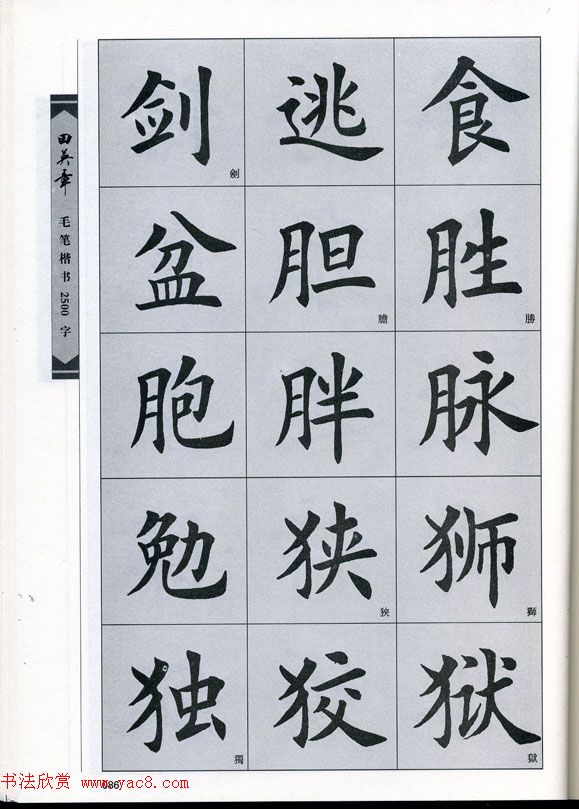 田英章 毛笔楷书 2500 字
剑 劍 逃 食
盆 胆 膽 胜 勝
胞 胖 脉
勉 狭 狹 狮 獅
独 獨 狡 狱 獄
086
书法欣赏 www.yac8.com